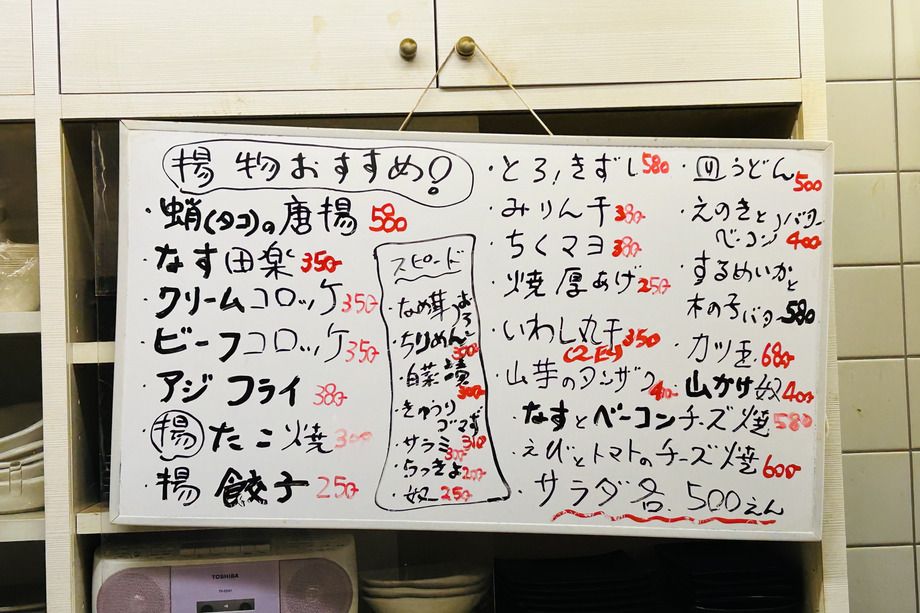 揚物おすすめ!
・蛸(タコ)の唐揚 580
・なす田楽 350
・クリームコロッケ 350
・ビーフコロッケ 350
・アジフライ 380
・揚たこ焼 300
・揚餃子 250
スピード
・なめ茸おろし
・ちりめんおろし 300
・白菜漬 300
・きゅうりゴマず 310
・サラミ 300
・らっきょ 200
・奴 250
・とろ!きずし 580
・みりん干 380
・ちくマヨ 380
・焼厚あげ 250
・いわし丸干 350
(2匹)
・山芋のタンザク 400
・なすとベーコンチーズ焼 580
・えびとトマトのチーズ焼 600
・サラダ各. 500えん
・皿うどん 500
・えのきとベーコンバター 400
・するめいかと
木の子バター 580
・カツ玉 680
・山かけ奴 400
TOSHIBA